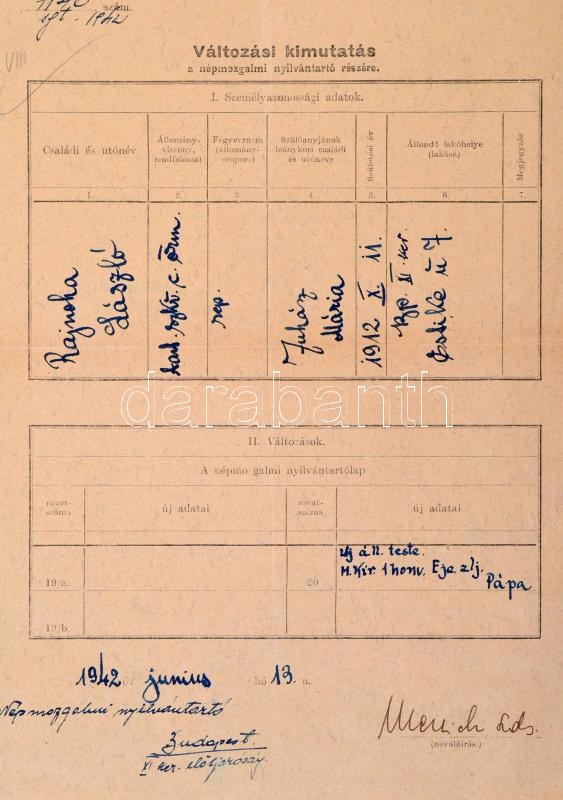 szám.
sgt. 1942
VIII
Változási kimutatás
a népmozgalmi nyilvántartó részére.
I. Személyazonossági adatok.
Családi és utónév
Állomány-
viszony,
rendfokozat
Fegyvernem
(állomány-
csoport)
Szülőanyjának
leánykori családi
és utóneve
Születési év
Állandó lakóhelye
(lakása)
Megjegyzés
1. 2. 3. 4. 5. 6. 7.
Rajnoha
László
c. őrm.
rep.
Juhász
Mária
1912 X. 11.
Bp. XI. ker.
Estike u 7.
darabanth
II. Változások.
A népmo galmi nyilvántartólap
rovat-
száma
új adatai
rovat-
száma
új adatai
19/a.
20
új áll. teste.
M. Kir. 1 honv. Eje. zlj.
Pápa
19/b.
1942 június hó 13. n.
Népmozgalmi nyilvántartó
Budapest.
XI ker. elöljáróság.
(névaláírás.)